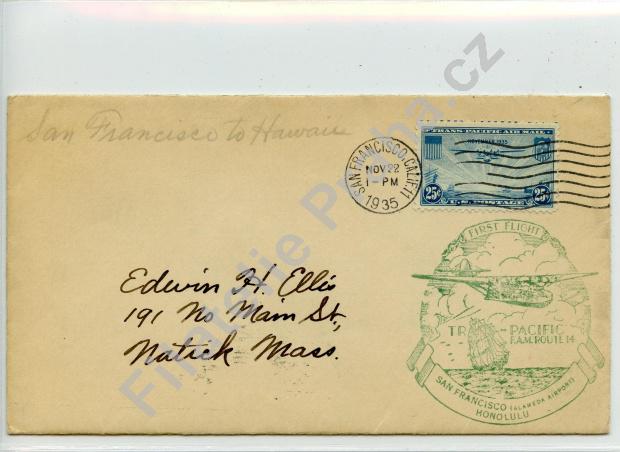 San Francisco to Hawaii
TRANS-PACIFIC AIR MAIL
NOVEMBER 1935
25¢ 25¢
U.S. POSTAGE
SAN FRANCISCO, CALIF. 11
NOV 22
1-PM
1935
Edwin H. Ellis
191 No Main St.,
Natick Mass.
FIRST FLIGHT
TR S-PACIFIC
F.A.M. ROUTE 14
SAN FRANCISCO (ALAMEDA AIRPORT)
HONOLULU
Filatelie Praha.cz